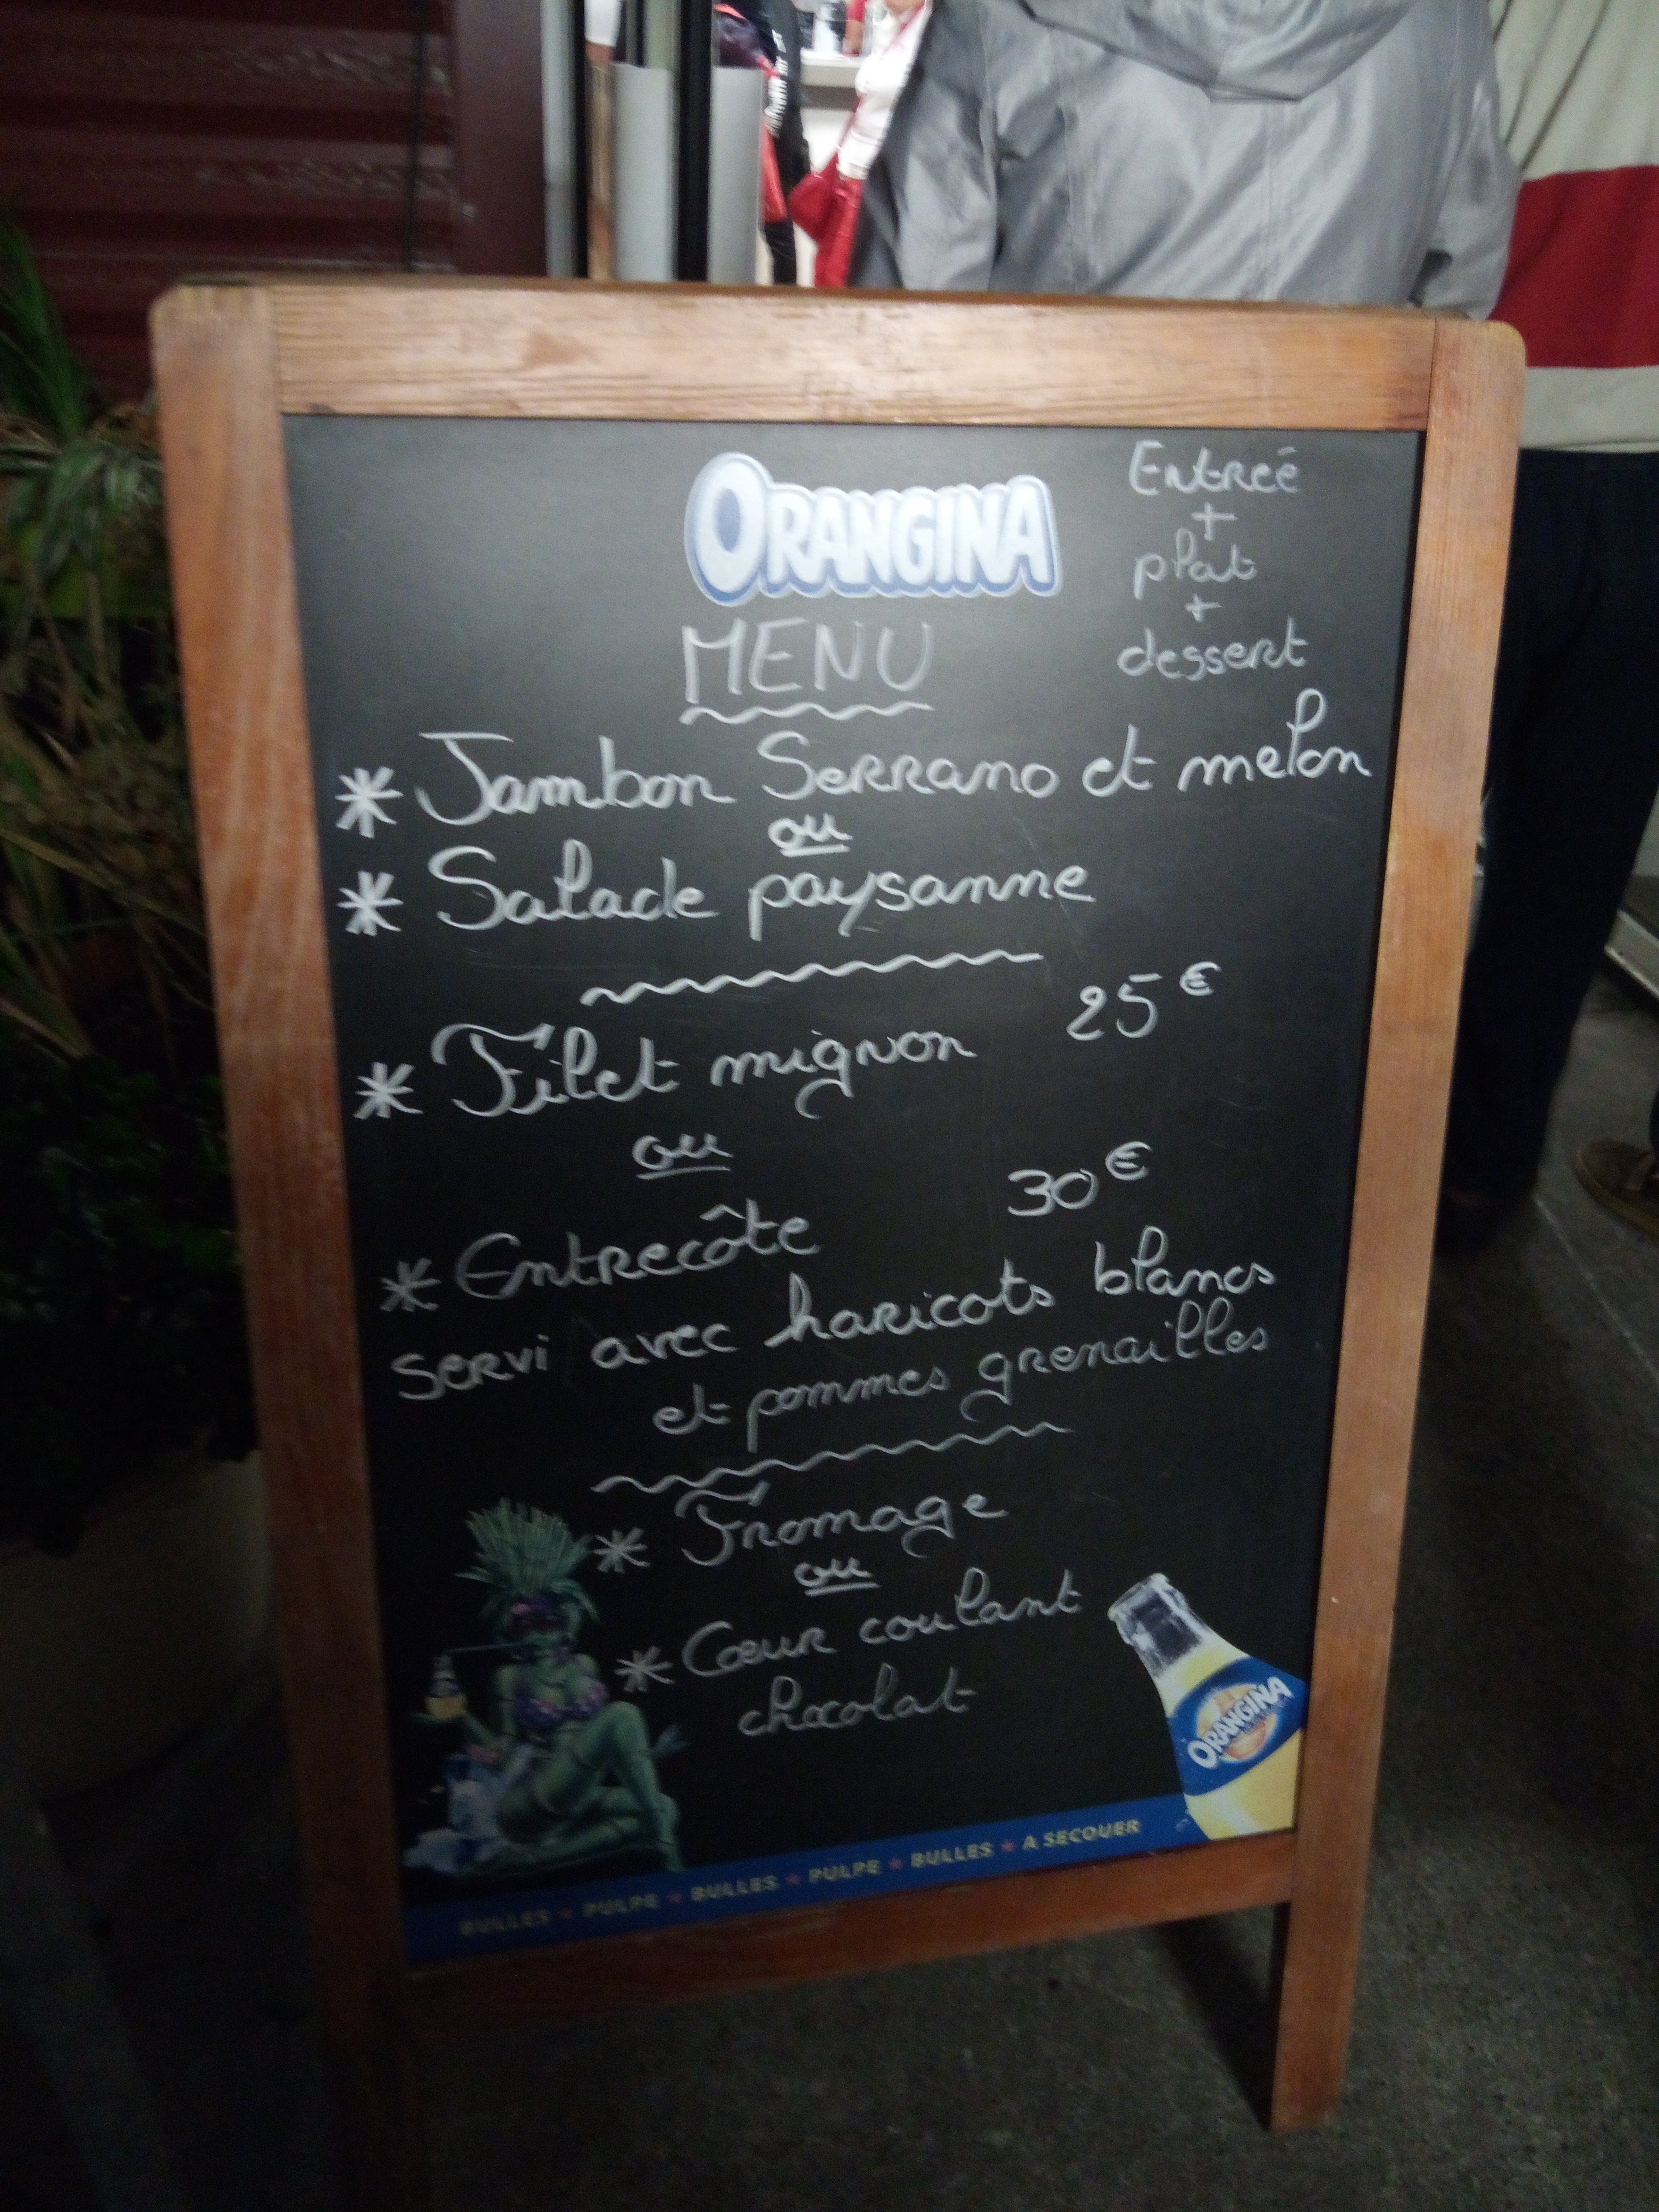 ORANGINA
Entreé
+
plat
+
dessert
MENU
* Jambon Serrano et melon
ou
* Salade paysanne
* Filet mignon 25€
ou
* Entrecôte 30€
servi avec haricots blancs
et pommes grenailles
* Fromage
ou
* Cœur coulant
chocolat
ORANGINA
BULLES ★ PULPE ★ BULLES ★ PULPE ★ BULLES ★ A SECOUER